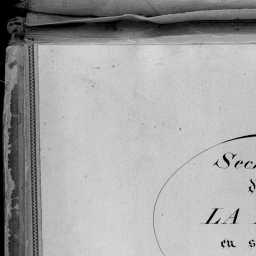 Sec
d
LA
en s